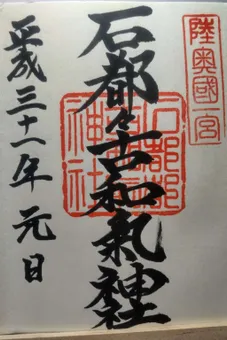 陸奥國一宮
石都々古和氣神社
平成三十一年 元日
石都都
神社